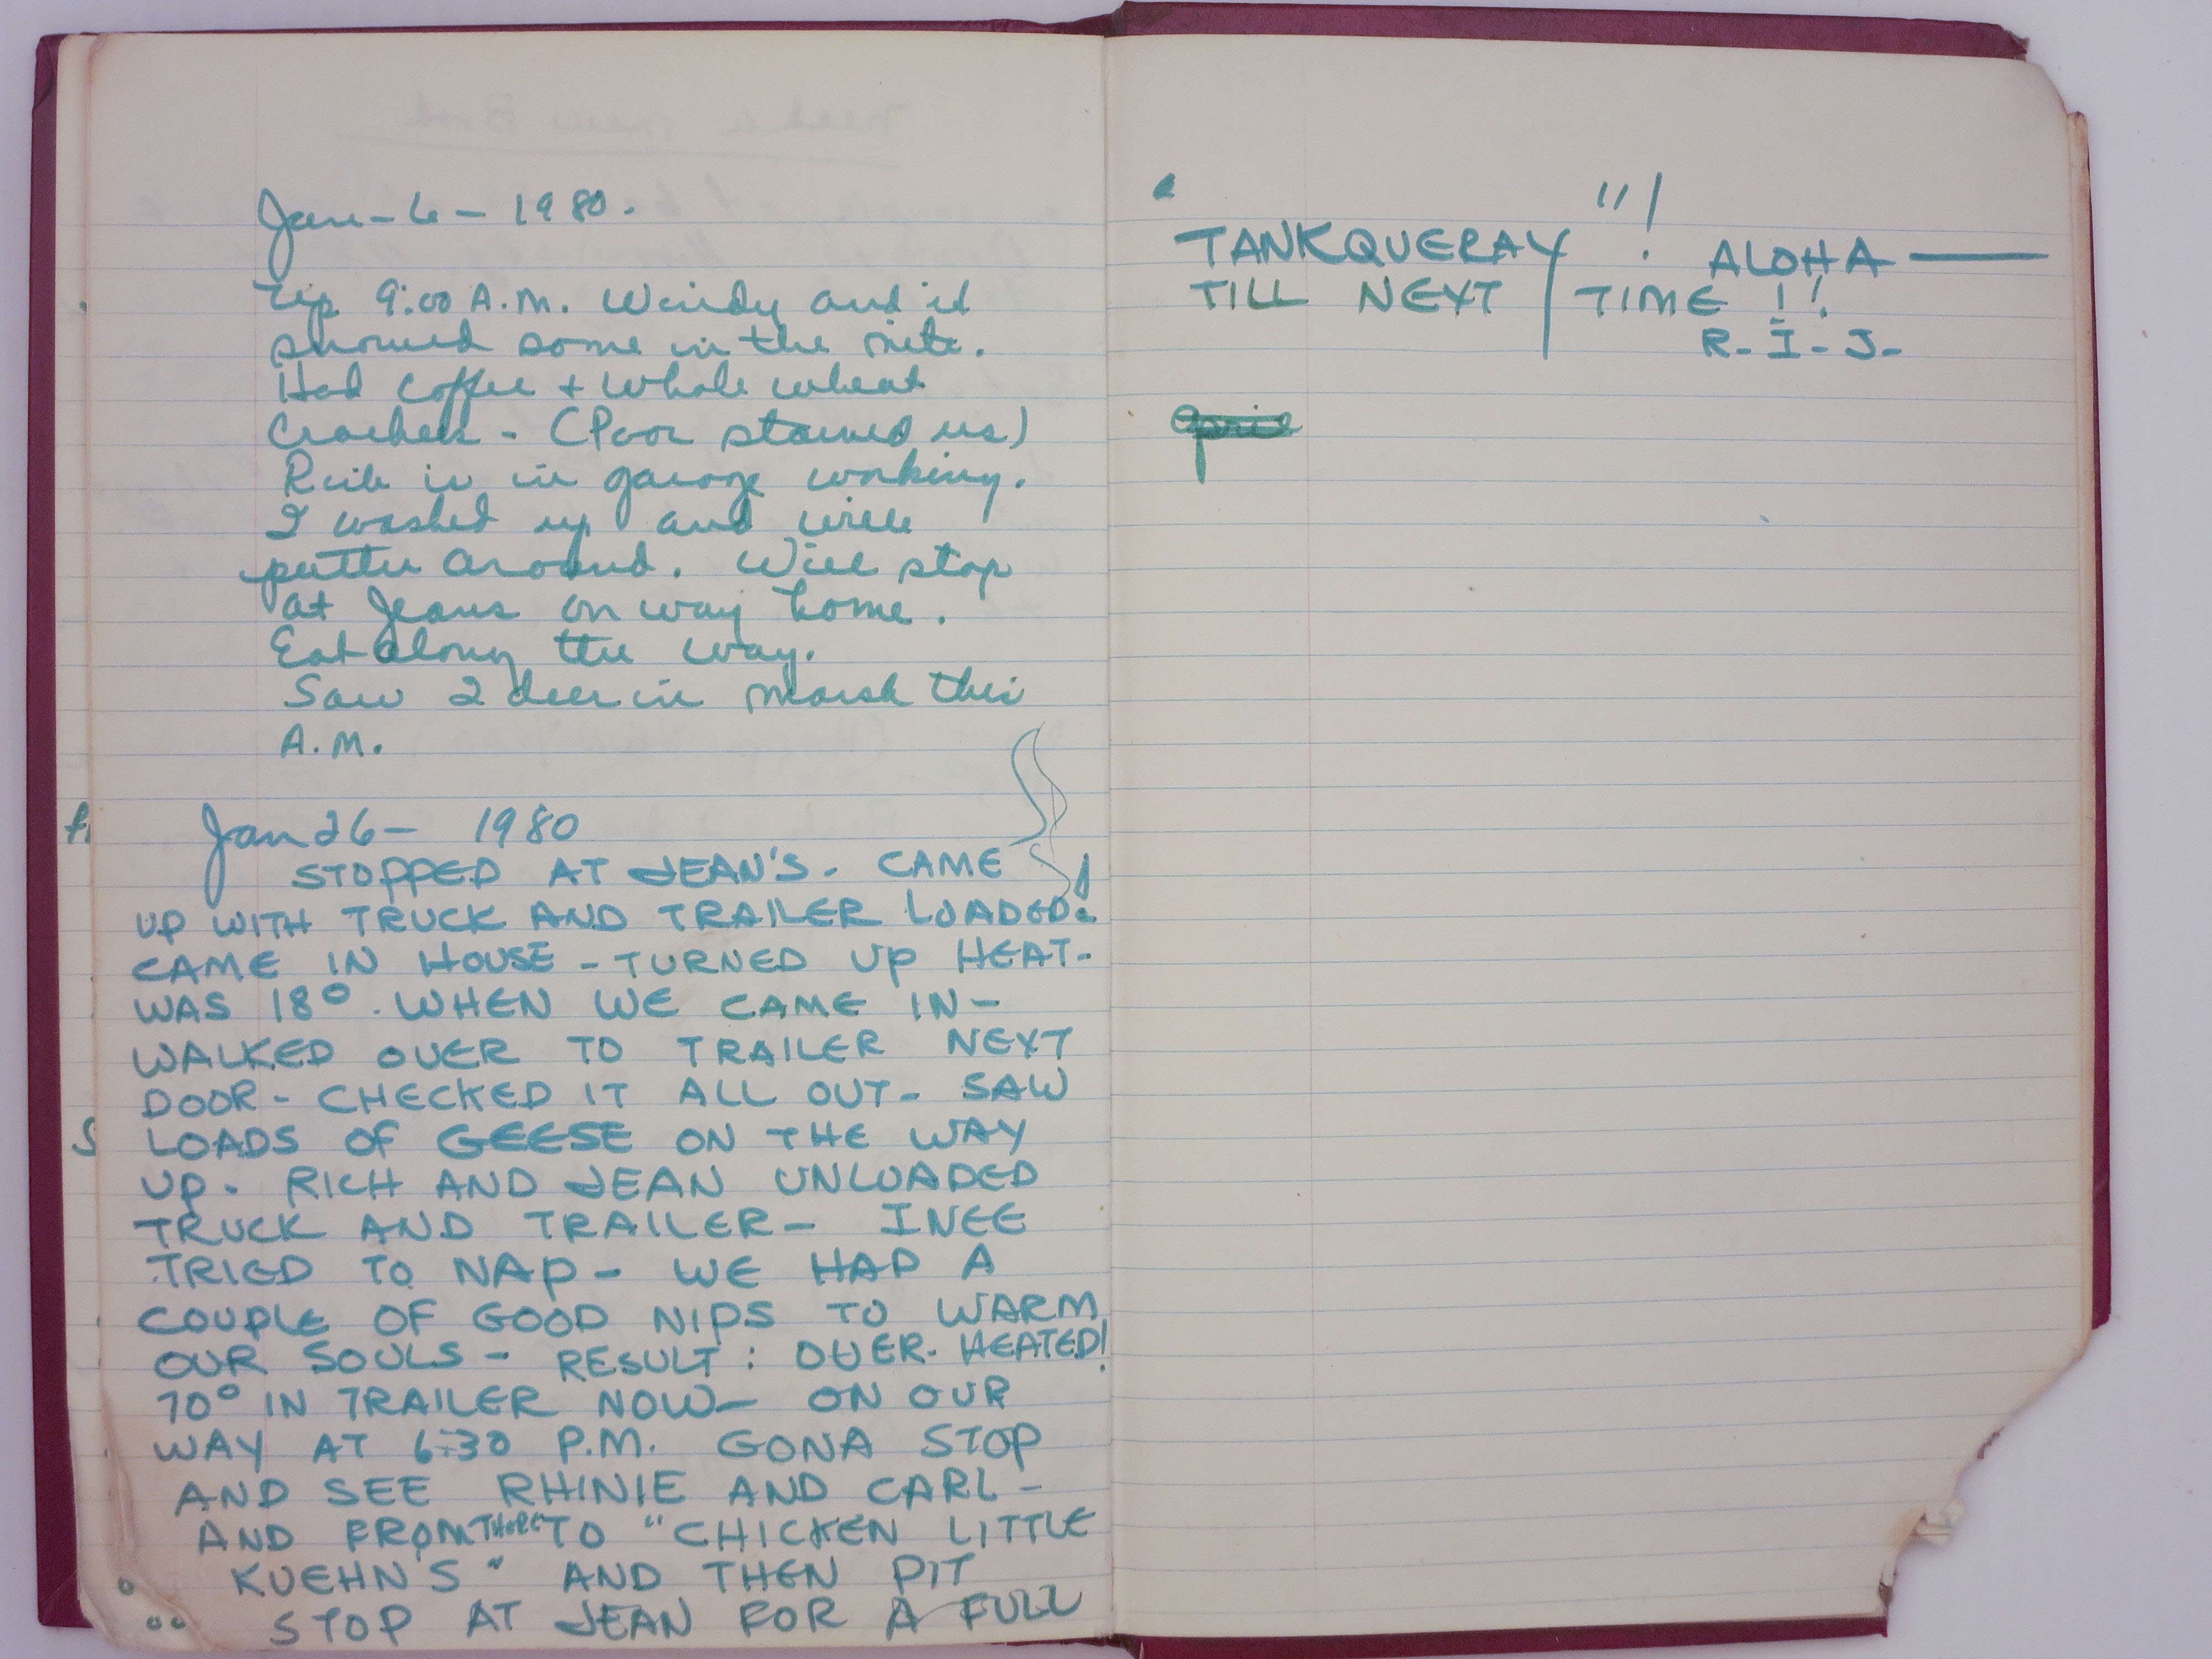 Jan-6-1980.
Up 9:00 A.M. Windy and it
snowed some in the nite.
Had coffee + whole wheat
Crackers - (Poor starved us)
is in garage working.
I washed up and will
putter around. Will stop
at Jeans on way home.
Eat along the way.
Saw 2 deer in marsh this
A.M.
Jan 26 - 1980
STOPPED AT JEAN'S. CAME
UP WITH TRUCK AND TRAILER LOADED!
CAME IN HOUSE - TURNED UP HEAT-
WAS 18° . WHEN WE CAME IN -
WALKED OVER TO TRAILER NEXT
DOOR - CHECKED IT ALL OUT - SAW
LOADS OF GEESE ON THE WAY
UP. RICH AND JEAN UNLOADED
TRUCK AND TRAILER - INEE
TRIED TO NAP - WE HAD A
COUPLE OF GOOD NIPS TO WARM
OUR SOULS - RESULT: OVER-HEATED!
70° IN TRAILER NOW - ON OUR
WAY AT 6:30 P.M. GONA STOP
AND SEE RHINIE AND CARL -
AND FROM THERE TO "CHICKEN LITTLE
KUEHN'S" AND THEN PIT
STOP AT JEAN FOR A FULL
TANKQUERAY"! ALOHA —
TILL NEXT TIME !!
R-I-J-